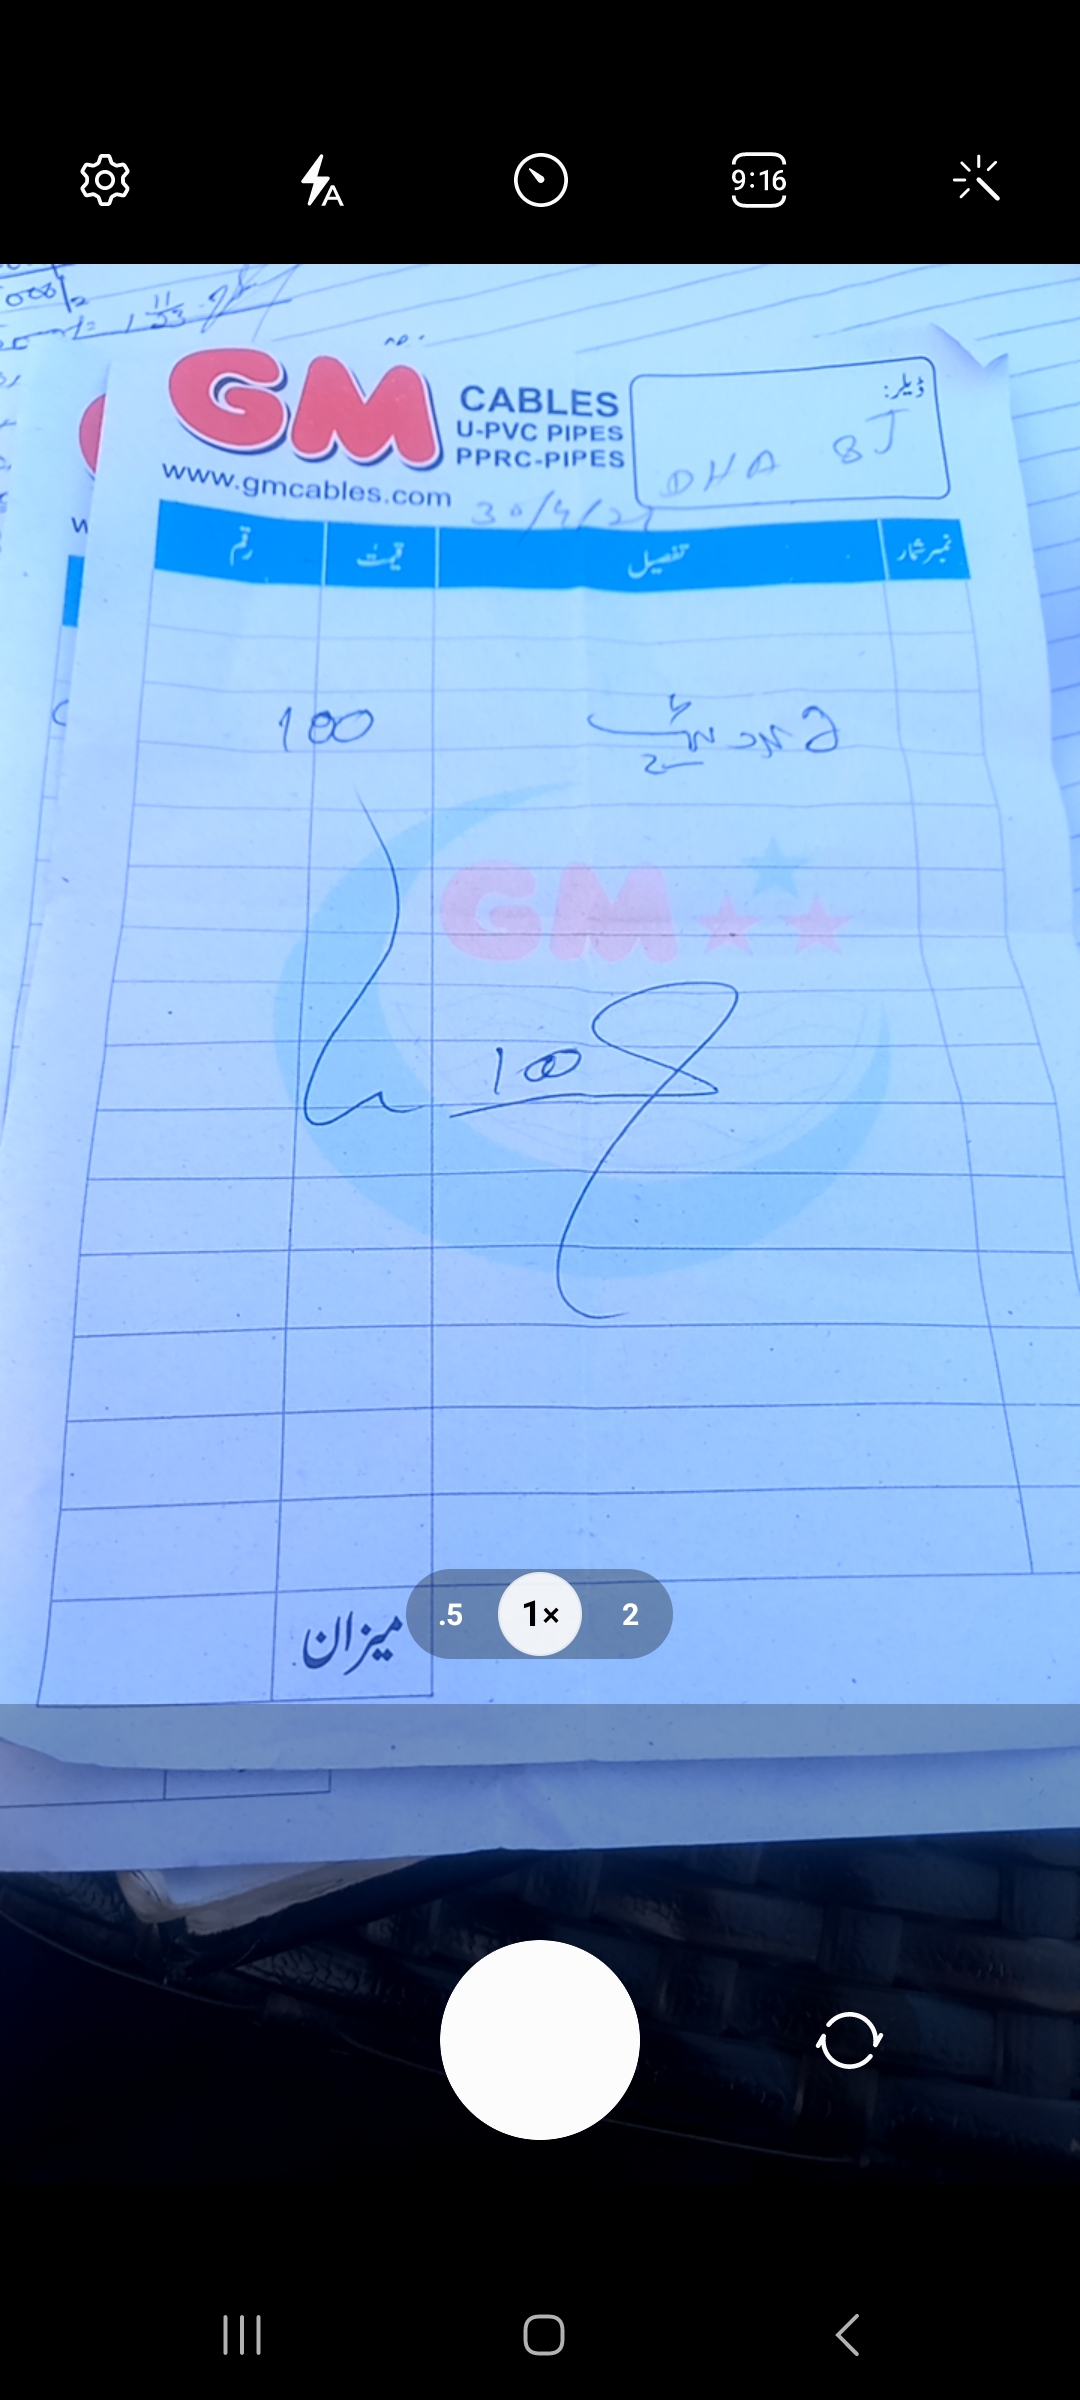 9:16
GM
CABLES
U-PVC PIPES
PPRC-PIPES
www.gmcables.com
ڈیلر:
DHA 8J
30/4/21
نمبر شمار تفصیل قیمت رقم
100
GM
100
میزان
.5 1× 2